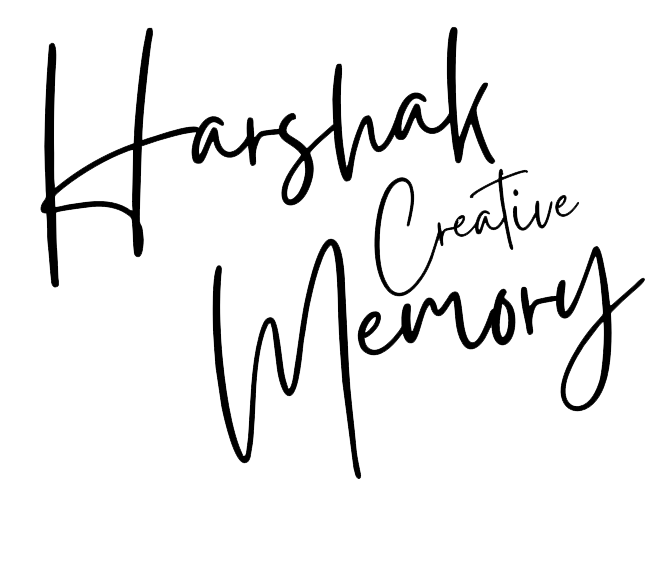 Harshak
Creative
Memory